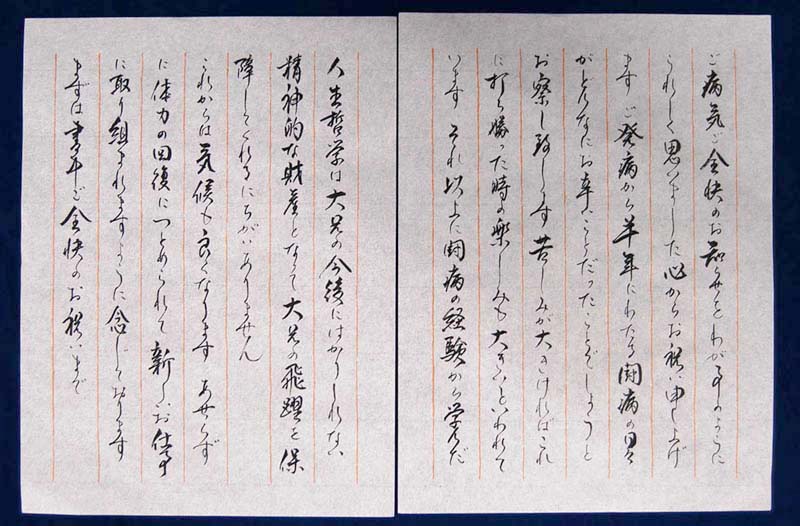 ご病気ご全快のお知らせをわが事のように
うれしく思いました心からお祝い申し上げ
ます ご発病から半年にわたる闘病の日々
がどんなにお辛いことだったことでしょうと
お察し致します 苦しみが大きければこれ
に打ち勝った時の楽しみも大きいといわれて
います それ以上に闘病の経験から学んだ
人生哲学は大兄の今後にはかりしれない
精神的な財産となって大兄の飛躍を保
障してくれるにちがいありません
これからは気候も良くなります あせらず
に体力の回復につとめられて新しいお仕事
に取り組まれますように念じております
まずは書中ご全快のお祝いまで